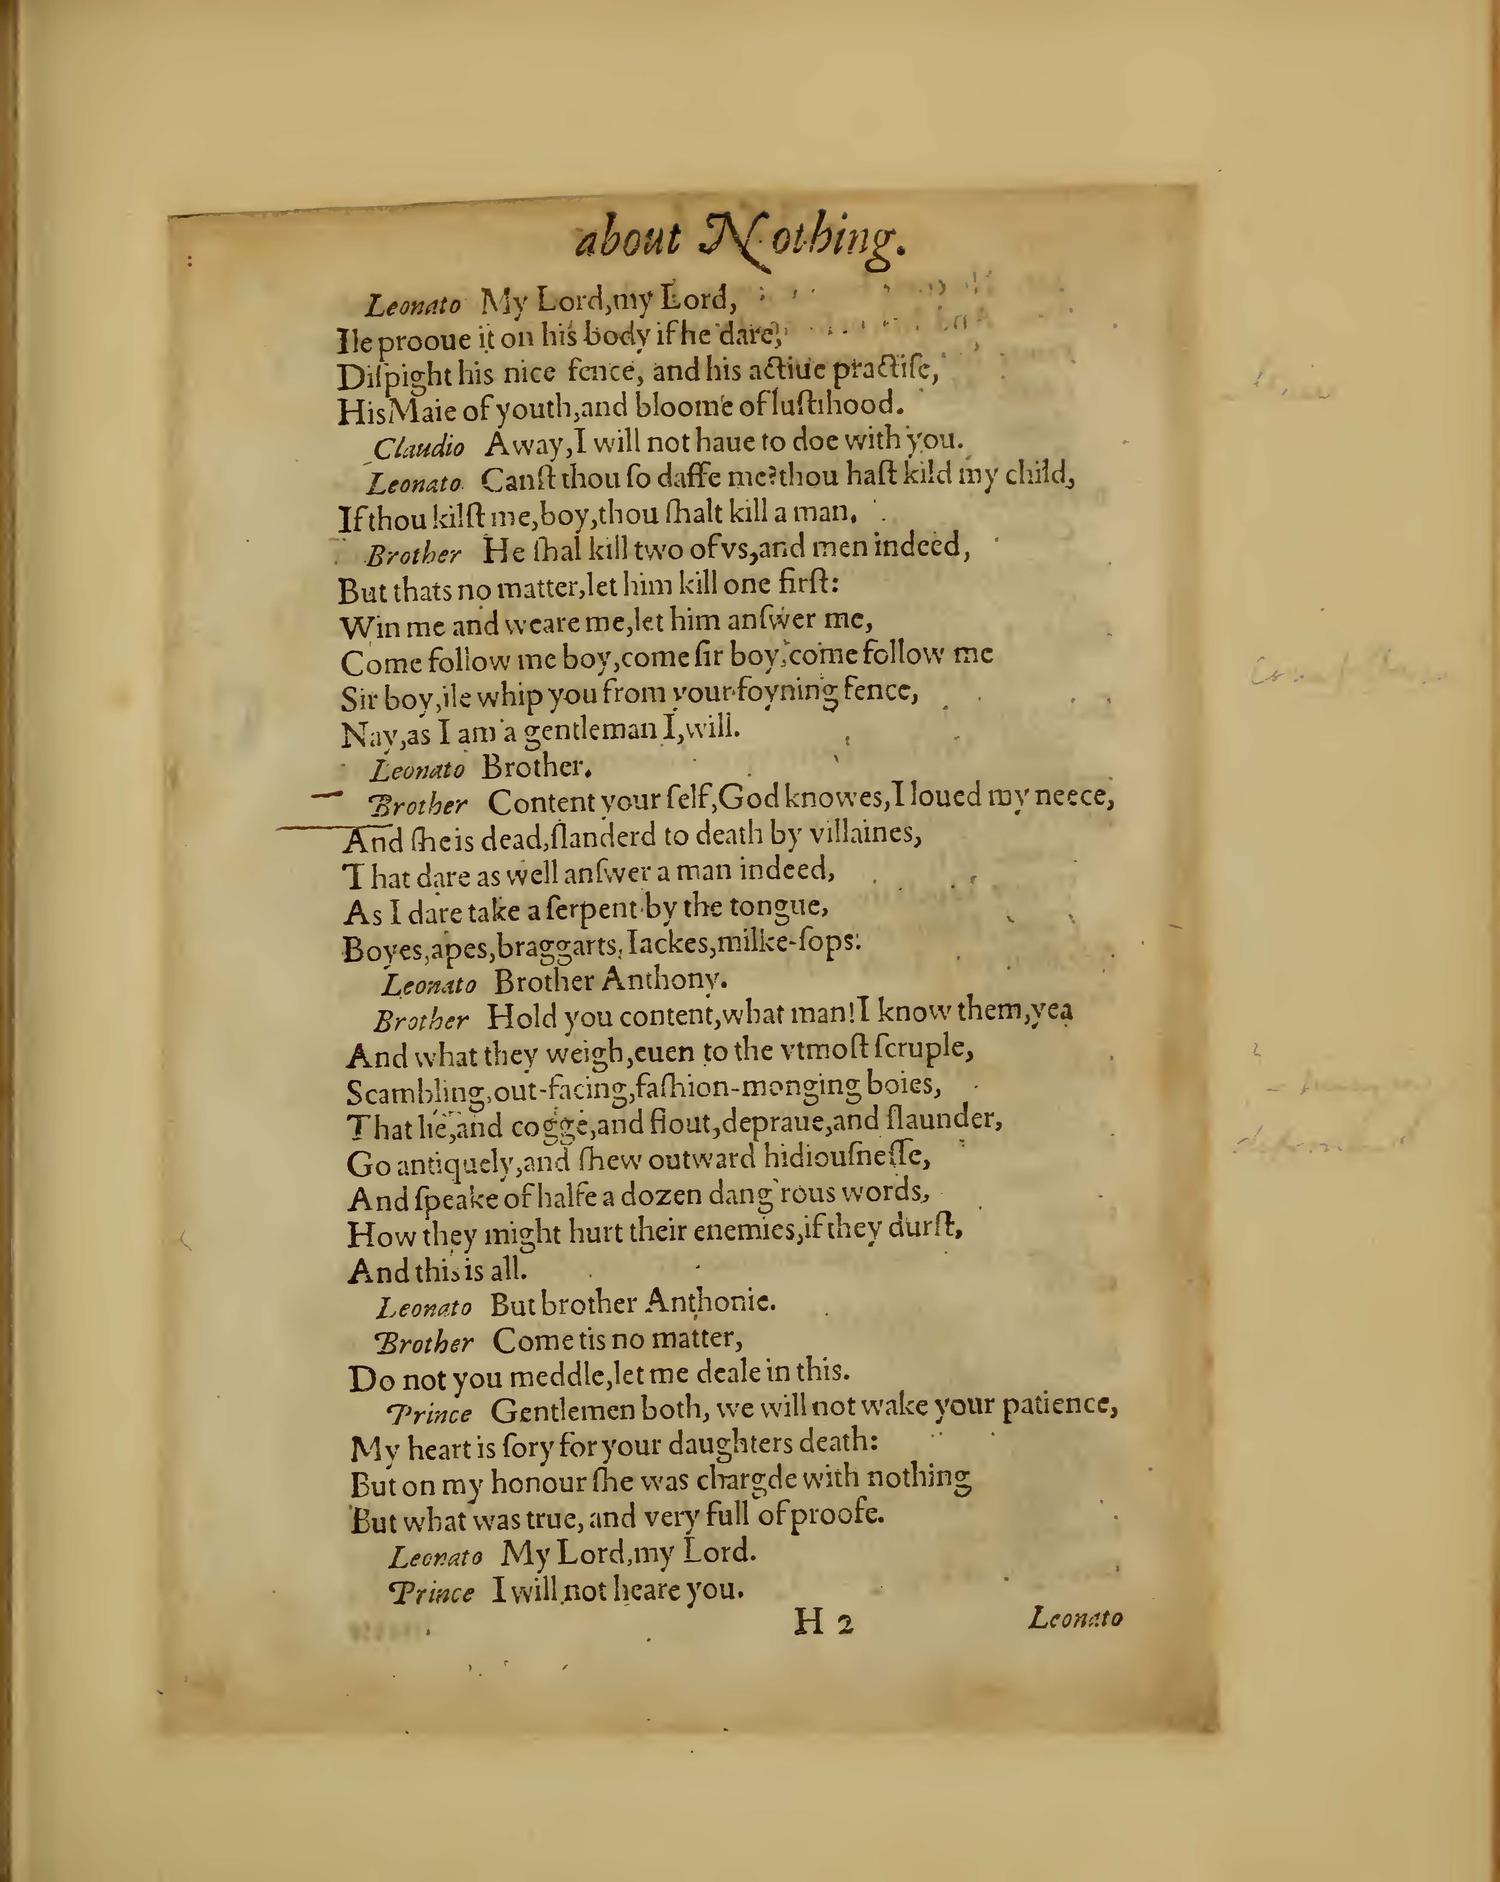 about Nothing.
Leonato My Lord,my Lord,
Ile prooue it on his body if he dare,
Diſpight his nice fence, and his actiue practiſe,
His Maie of youth,and bloome of luſtihood.
Claudio Away,I will not haue to doe with you.
Leonato Canſt thou ſo daffe me?thou haſt kild my child,
If thou kilſt me,boy,thou ſhalt kill a man.
Brother He ſhal kill two of vs,and men indeed,
But thats no matter,let him kill one firſt:
Win me and weare me,let him anſwer me,
Come follow me boy,come ſir boy,come follow me
Sir boy,ile whip you from your foyning fence,
Nay,as I am a gentleman I,will.
Leonato Brother.
Brother Content your ſelf,God knowes,I loued my neece,
And ſhe is dead,ſlanderd to death by villaines,
That dare as well anſwer a man indeed,
As I dare take a ſerpent by the tongue,
Boyes,apes,braggarts,Iackes,milke-ſops.
Leonato Brother Anthony.
Brother Hold you content,what man!I know them,yea
And what they weigh,euen to the vtmoſt ſcruple,
Scambling,out-facing,faſhion-monging boies,
That lie,and cogge,and flout,depraue,and ſlaunder,
Go antiquely,and ſhew outward hidiouſneſſe,
And ſpeake of halfe a dozen dang'rous words,
How they might hurt their enemies,if they durſt,
And this is all.
Leonato But brother Anthonie.
Brother Come tis no matter,
Do not you meddle,let me deale in this.
Prince Gentlemen both, we will not wake your patience,
My heart is ſory for your daughters death:
But on my honour ſhe was chargde with nothing
But what was true, and very full of proofe.
Leonato My Lord,my Lord.
Prince I will not heare you.
H 2 Leonato